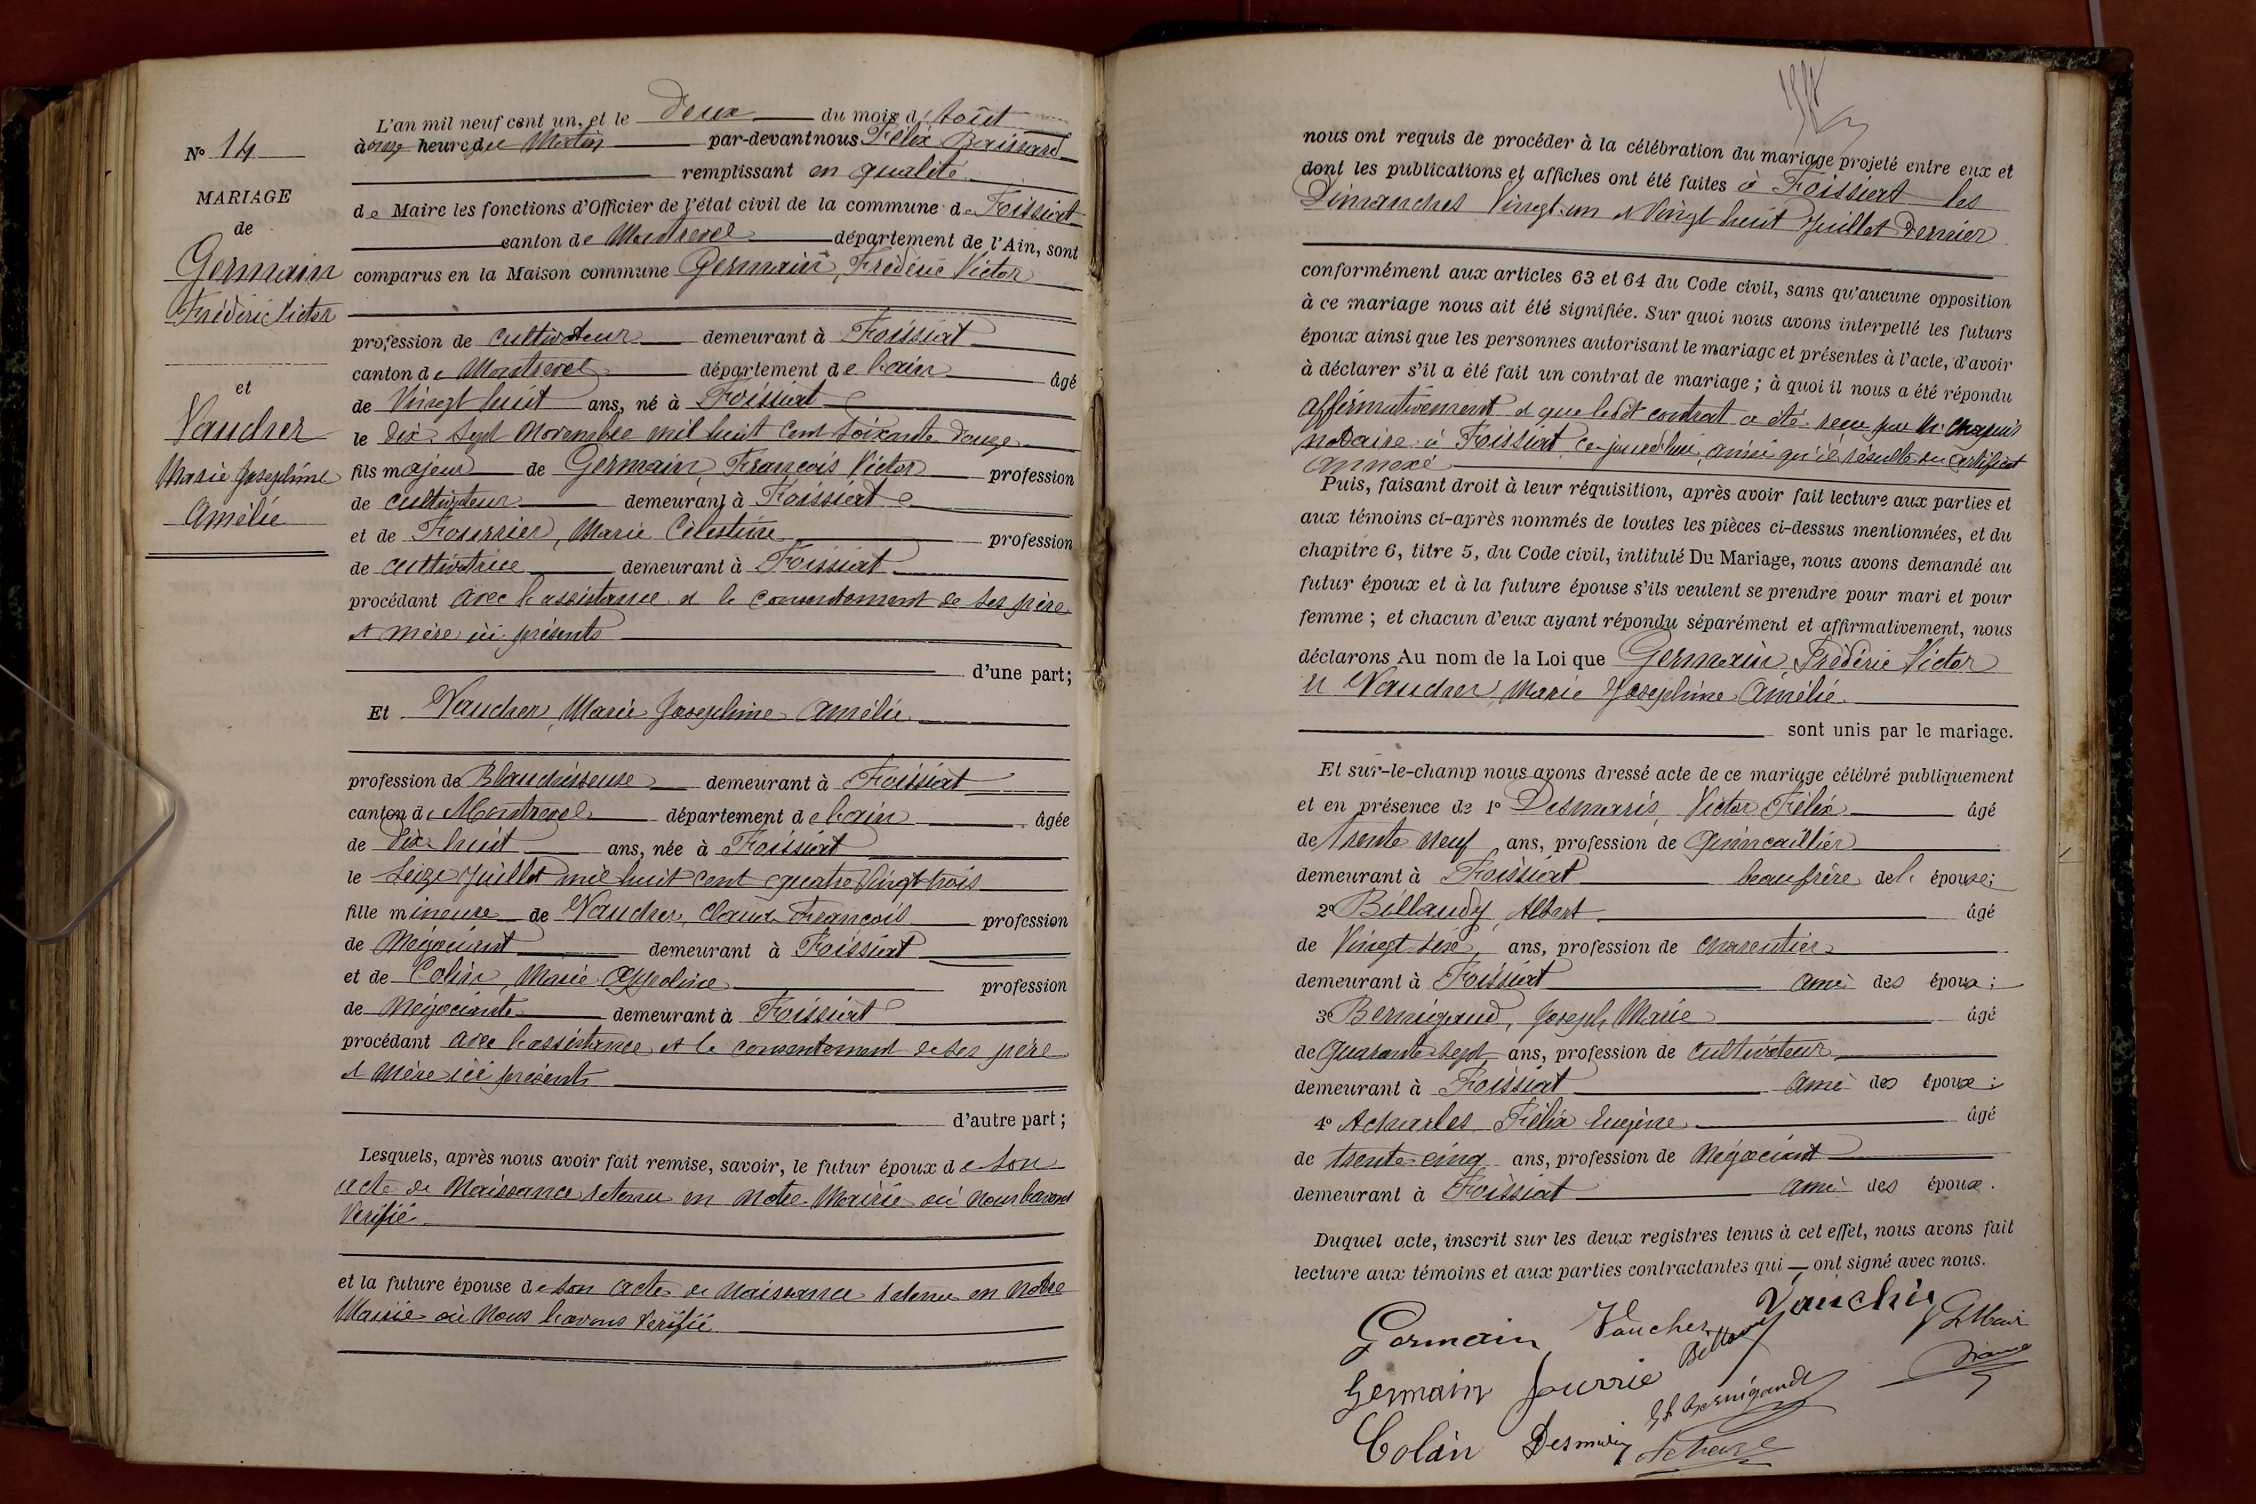 N° 14
MARIAGE
de
Germain
Frédéric Victor
et
Vaucher
Marie Joséphine
Amélie
L'an mil neuf cent un, et le deux du mois d'Août
à onze heure du Matin par-devant nous Félix
remplissant en qualité
de Maire les fonctions d'Officier de l'état civil de la commune de Foissiat
canton de Montrevel département de l'Ain, sont
comparus en la Maison commune Germain, Frédéric Victor
profession de cultivateur demeurant à Foissiat
canton de Montrevel département de l'ain âgé
de Vingt huit ans, né à Foissiat
le dix-sept Novembre mil huit cent soixante douze
fils majeur de Germain, François Victor profession
de cultivateur demeurant à Foissiat
et de Fourrier, Marie Célestine profession
de cultivatrice demeurant à Foissiat
procédant avec l'assistance et le consentement de ses père
et mère ici présents
d'une part;
Et Vaucher, Marie Joséphine Amélie
profession de Blanchisseuse demeurant à Foissiat
canton de Montrevel département de l'ain âgée
de Dix-huit ans, née à Foissiat
le Seize Juillet mil huit cent quatre Vingt trois
fille mineure de Vaucher, Claude François profession
de Négociant demeurant à Foissiat
et de Colin, Marie Appoline profession
de Négociante demeurant à Foissiat
procédant avec l'assistance et le consentement de ses père
et Mère ici présents
d'autre part;
Lesquels, après nous avoir fait remise, savoir, le futur époux de son
acte de Naissance retenu en Notre Mairie où Nous l'avons
Vérifié
et la future épouse de son acte de Naissance retenu en Notre
Mairie où Nous l'avons Vérifié
nous ont requis de procéder à la célébration du mariage projeté entre eux et
dont les publications et affiches ont été faites à Foissiat les
Dimanches Vingt-un et Vingt huit Juillet Dernier
conformément aux articles 63 et 64 du Code civil, sans qu'aucune opposition
à ce mariage nous ait été signifiée. Sur quoi nous avons interpellé les futurs
époux ainsi que les personnes autorisant le mariage et présentes à l'acte, d'avoir
à déclarer s'il a été fait un contrat de mariage; à quoi il nous a été répondu
affirmativement et que ledit contrat a été reçu par Me Chapuis
notaire à Foissiat, ce jourd'hui, ainsi qu'il résulte du certificat
annexé
Puis, faisant droit à leur réquisition, après avoir fait lecture aux parties et
aux témoins ci-après nommés de toutes les pièces ci-dessus mentionnées, et du
chapitre 6, titre 5, du Code civil, intitulé Du Mariage, nous avons demandé au
futur époux et à la future épouse s'ils veulent se prendre pour mari et pour
femme; et chacun d'eux ayant répondu séparément et affirmativement, nous
déclarons Au nom de la Loi que Germain, Frédéric Victor
et Vaucher, Marie Joséphine Amélie
sont unis par le mariage.
Et sur-le-champ nous avons dressé acte de ce mariage célébré publiquement
et en présence de 1° Desmaris, Victor Félix âgé
de trente Neuf ans, profession de Quincaillier
demeurant à Foissiat beau frère de l' épouse;
2° Billaudy, Albert âgé
de Vingt-six ans, profession de charpentier
demeurant à Foissiat ami des époux;
3° Bernigaud, Joseph Marie âgé
de quarante-sept ans, profession de cultivateur
demeurant à Foissiat ami des époux;
4° Acharles Félix Eugène âgé
de trente-cinq ans, profession de Négociant
demeurant à Foissiat ami des époux.
Duquel acte, inscrit sur les deux registres tenus à cet effet, nous avons fait
lecture aux témoins et aux parties contractantes qui ont signé avec nous.
Germain Vaucher Vaucher
Germain fourrier
Colin Desmaris